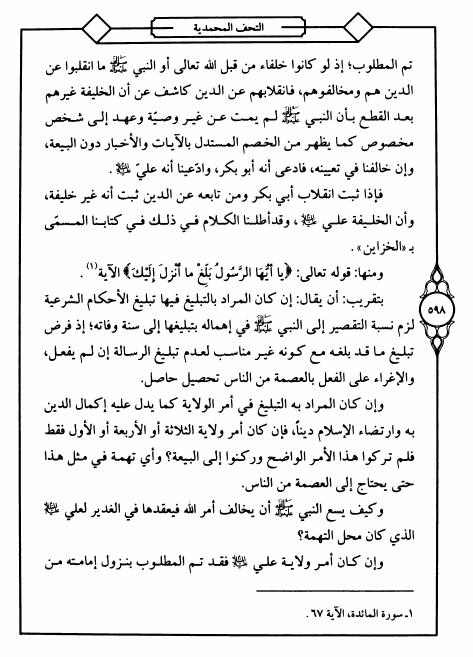 التحف المحمدية
تم المطلوب؛ إذ لو كانوا خلفاء من قبل الله تعالى أو النبي ﷺ ما انقلبوا عن
الدين هم ومخالفوهم، فانقلابهم عن الدين كاشف عن أن الخليفة غيرهم
بعد القطع بأن النبي ﷺ لم يمت عن غير وصيّة وعهد إلى شخص
مخصوص كما يظهر من الخصم المستدل بالآيات والأخبار دون البيعة،
وإن خالفنا في تعيينه، فادعى أنه أبو بكر، وادّعينا أنه عليّ .
فإذا ثبت انقلاب أبي بكر ومن تابعه عن الدين ثبت أنه غير خليفة،
وأن الخليفة علي ، وقد أطلنا الكلام في ذلك في كتابنا المسمّى
بـ «الخزاين».
ومنها: قوله تعالى: ﴿يا أَيُّهَا الرَّسُولُ بَلِّغْ ما أُنْزِلَ إِلَيْكَ﴾ الآية(١) .
بتقريب: أن يقال: إن كان المراد بالتبليغ فيها تبليغ الأحكام الشرعية
لزم نسبة التقصير إلى النبي ﷺ في إهماله بتبليغها إلى سنة وفاته؛ إذ فرض
تبليغ ما قد بلغه مع كونه غير مناسب لعدم تبليغ الرسالة إن لم يفعل،
والإغراء على الفعل بالعصمة من الناس تحصيل حاصل.
وإن كان المراد به التبليغ في أمر الولاية كما يدل عليه إكمال الدين
به وارتضاء الإسلام ديناً، فإن كان أمر ولاية الثلاثة أو الأربعة أو الأول فقط
فلم تركوا هذا الأمر الواضح وركنوا إلى البيعة؟ وأي تهمة في مثل هذا
حتى يحتاج إلى العصمة من الناس.
وكيف يسع النبي ﷺ أن يخالف أمر الله فيعقدها في الغدير لعلي
الذي كان محل التهمة؟
وإن كان أمر ولاية علي فقد تم المطلوب بنزول إمامته من
٥٩٨
١ـ سورة المائدة، الآية ٦٧ .